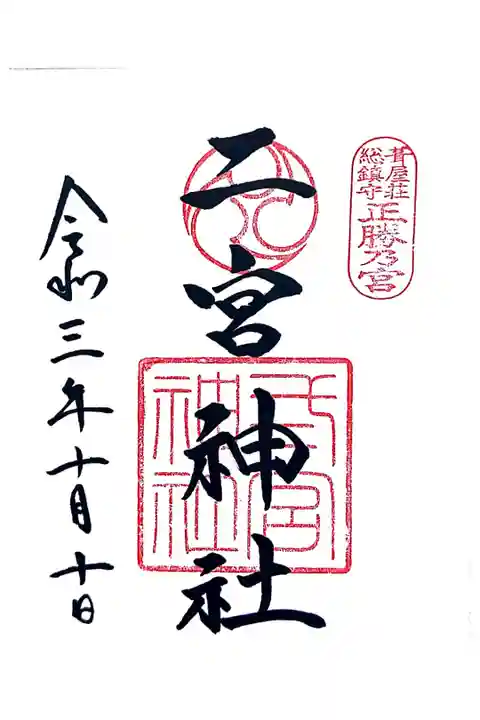 葺屋荘
総鎮守
正勝乃宮
二宮神社
二宮
神社
令和三年十月十日